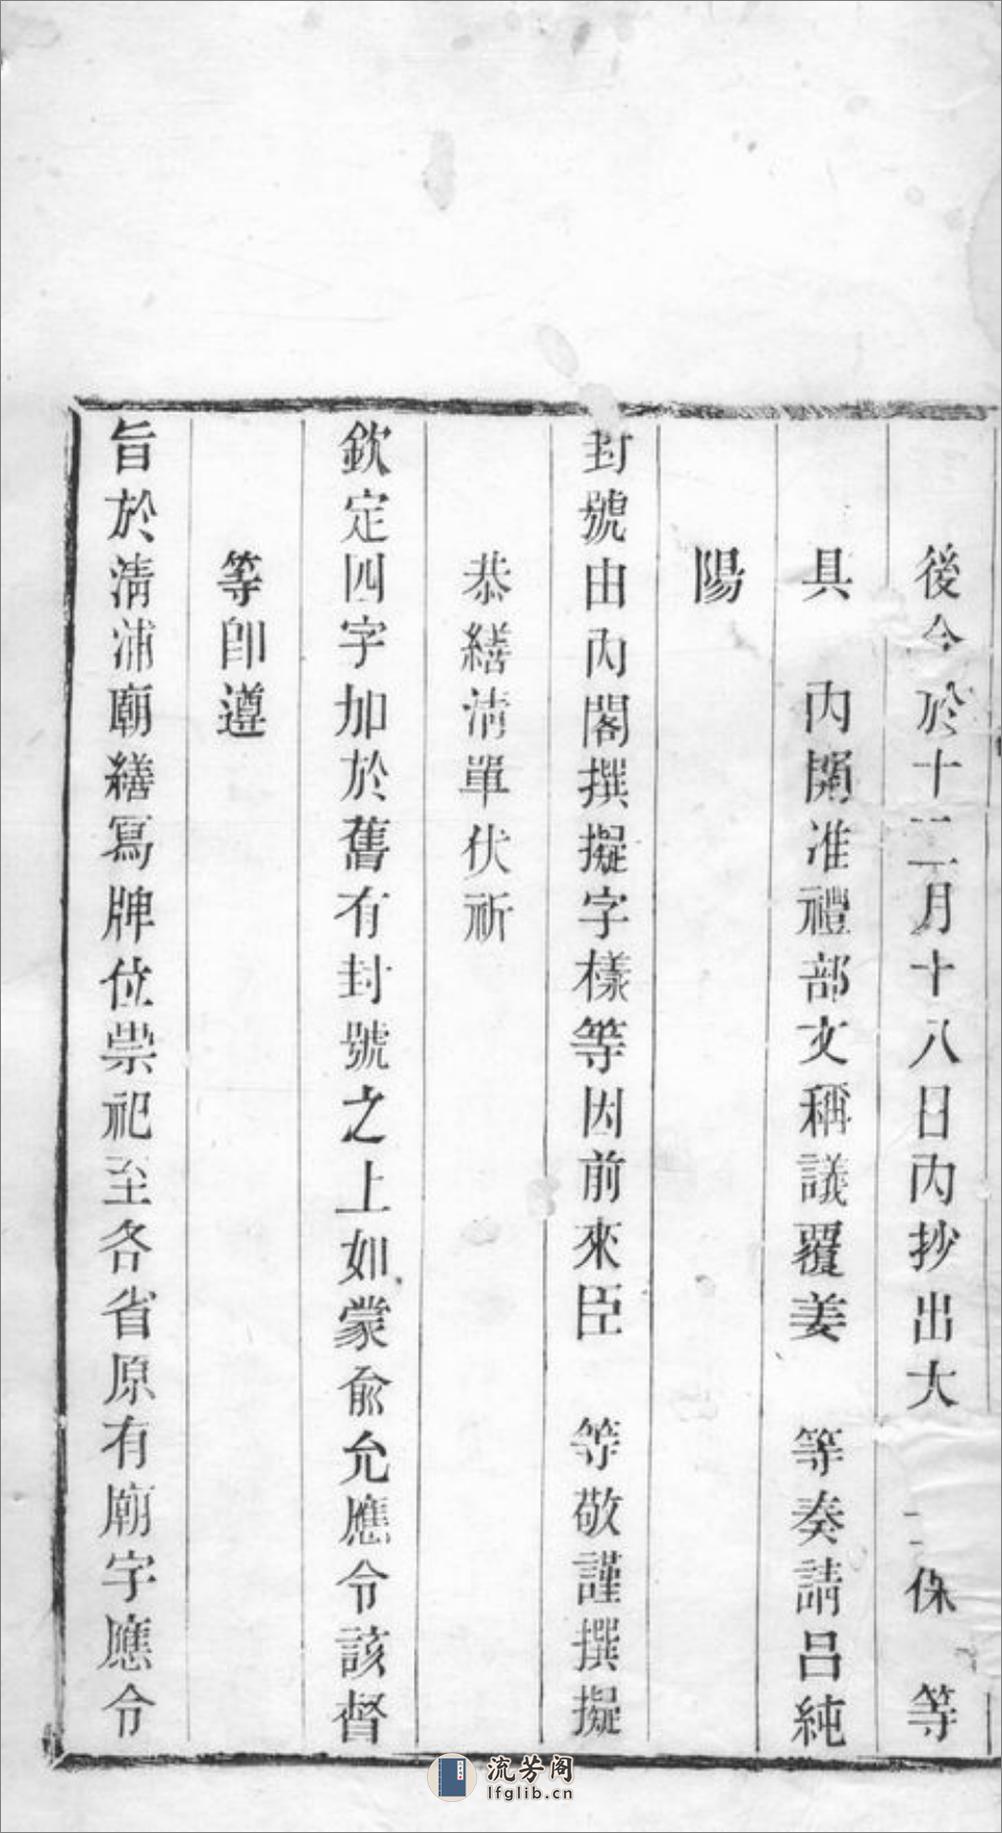 後今於十二月十八日內抄出大 保 等
具 內開准禮部文稱議覆姜 等奏請呂純
陽
封號由內閣撰擬字樣等因前來臣 等敬謹撰擬
恭繕清單伏祈
欽定四字加於舊有封號之上如蒙俞允應令該督
等卽遵
旨於清浦廟繕寫牌位崇祀至各省原有廟宇應令
流芳阁
lfglib.cn